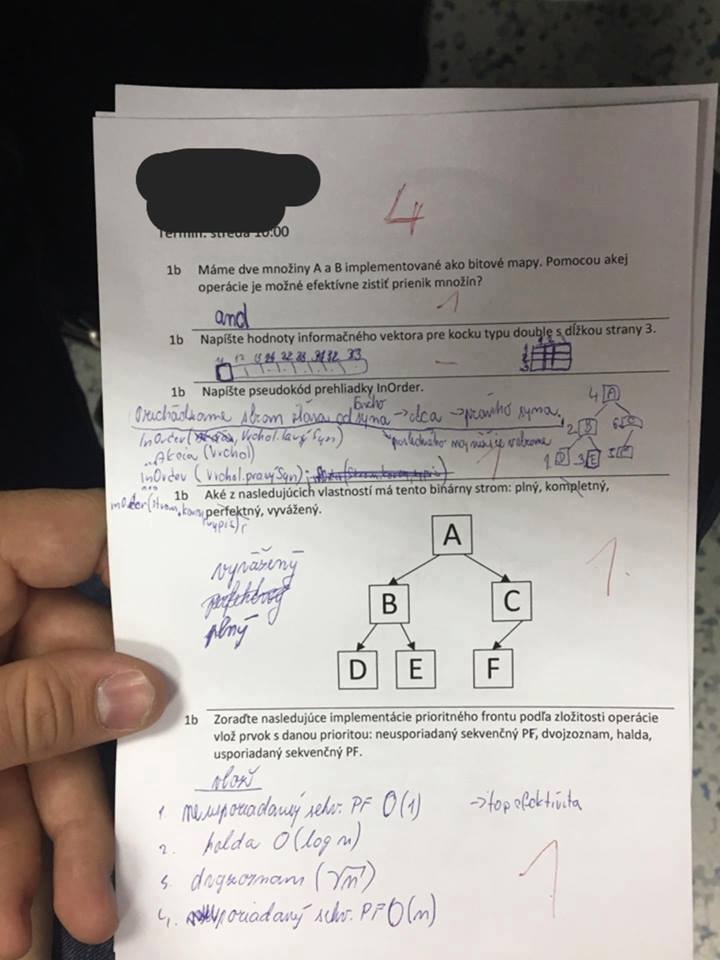 4
Termín: streda 10:00
1b Máme dve množiny A a B implementované ako bitové mapy. Pomocou akej
operácie je možné efektívne zistiť prienik množín?
1
and
1b Napíšte hodnoty informačného vektora pre kocku typu double s dĺžkou strany 3.
1b Napíšte pseudokód prehliadky InOrder.
strom
syna → otca → pravého syna.
InOrder( Vrchol.ľavý Syn)
Akcia (Vrchol)
InOrder (Vrchol.pravý Syn);
1
4 A
2 B
1 D 3 E
1b Aké z nasledujúcich vlastností má tento binárny strom: plný, kompletný,
perfektný, vyvážený.
vyvážený
plný
1.
A
B C
D E F
1b Zoraďte nasledujúce implementácie prioritného frontu podľa zložitosti operácie
vlož prvok s danou prioritou: neusporiadaný sekvenčný PF, dvojzoznam, halda,
usporiadaný sekvenčný PF.
vlož
1. neusporiadaný sekv. PF O(1) → top efektivita
2. halda O(log n)
3. dvojzoznam (√n)
4. usporiadaný sekv. PF O(n)
1